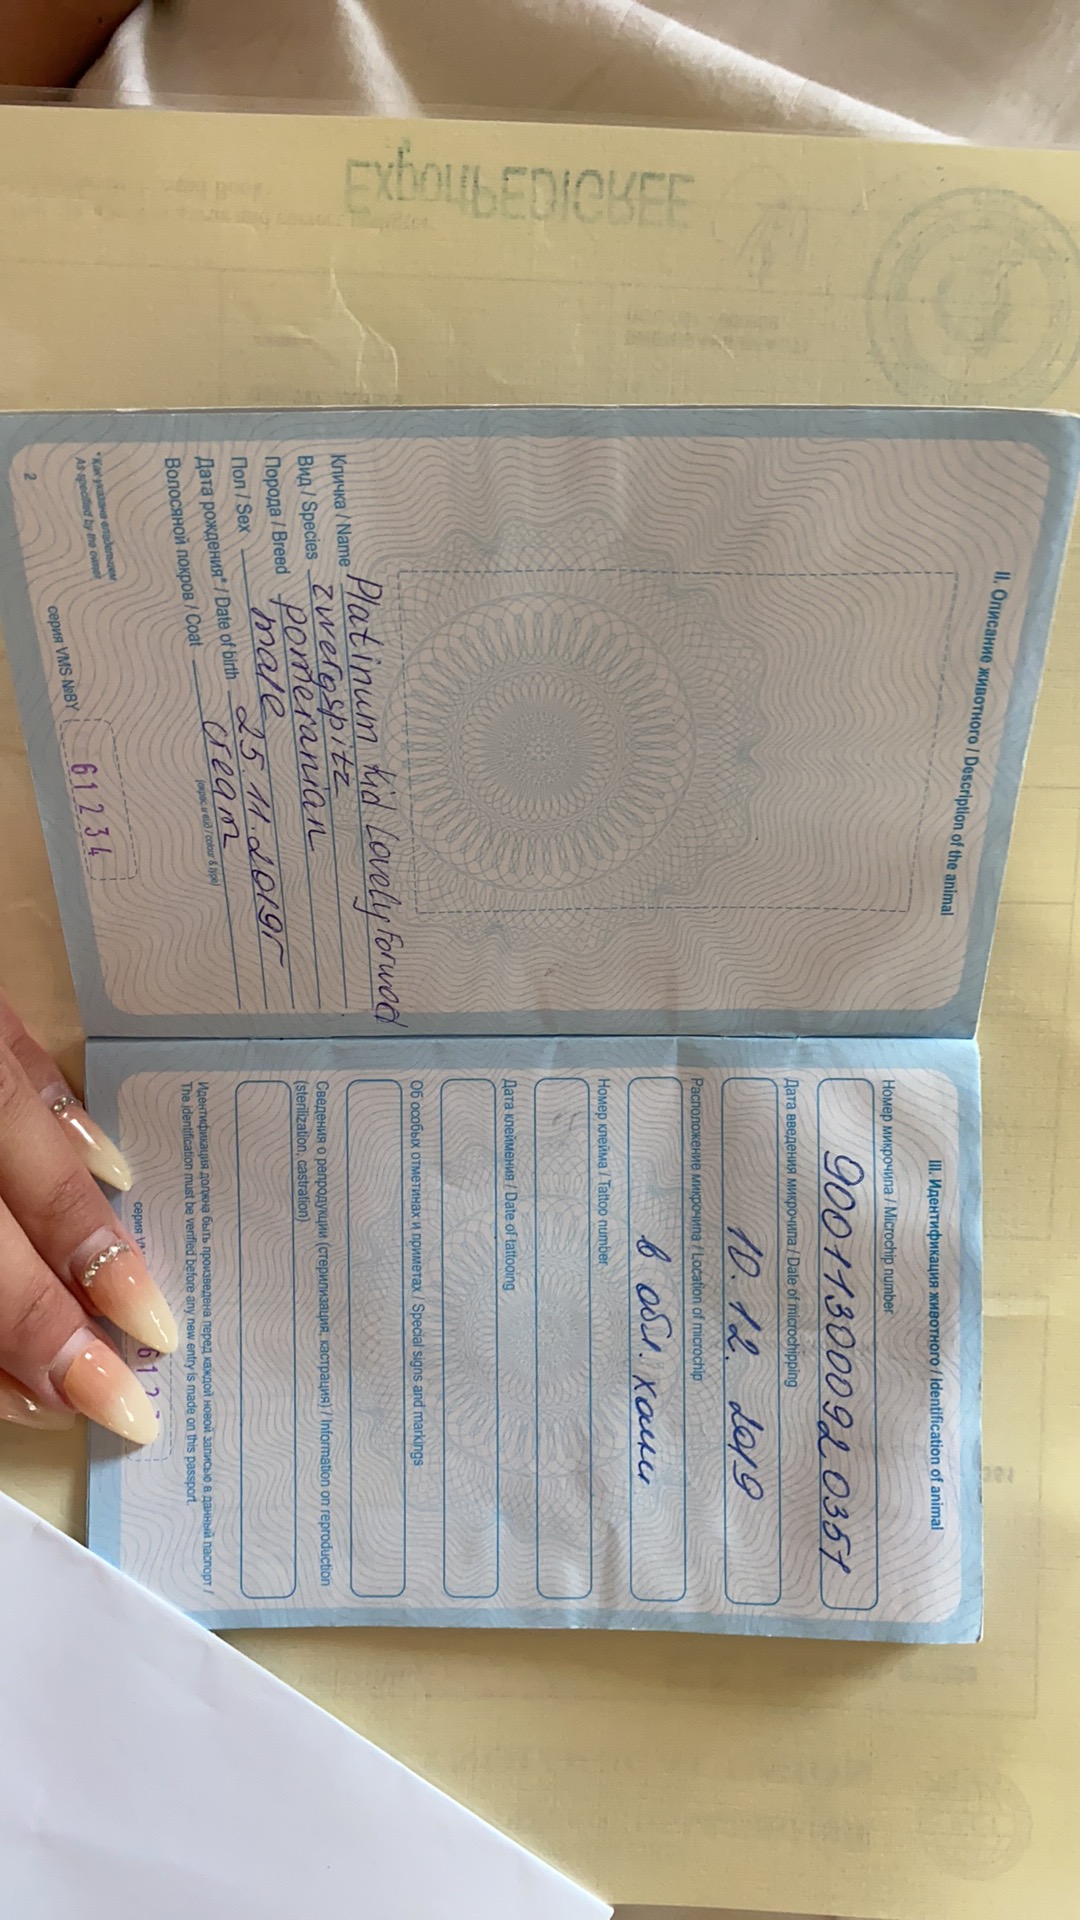 Export PEDIGREE
II. Описание животного / Description of the animal
Кличка / Name Platinum Kid Lovely Forward
Вид / Species zwergspitz
Порода / Breed pomeranian
Пол / Sex male
Дата рождения* / Date of birth 25.11.2019г
Волосяной покров / Coat cream
(окрас и вид / colour & type)
* Как указано владельцем
As specified by the owner
2
серия VMS №BY 61234
III. Идентификация животного / Identification of animal
Номер микрочипа / Microchip number
900113000920351
Дата введения микрочипа / Date of microchipping
10.12.2019
Расположение микрочипа / Location of microchip
в обл. холки
Номер клейма / Tattoo number
Дата клеймения / Date of tattooing
Об особых отметинах и приметах / Special signs and markings
Сведения о репродукции (стерилизация, кастрация) / Information on reproduction
(sterilization, castration)
Идентификация должна быть произведена перед каждой новой записью в данный паспорт /
The identification must be verified before any new entry is made on this passport.
серия